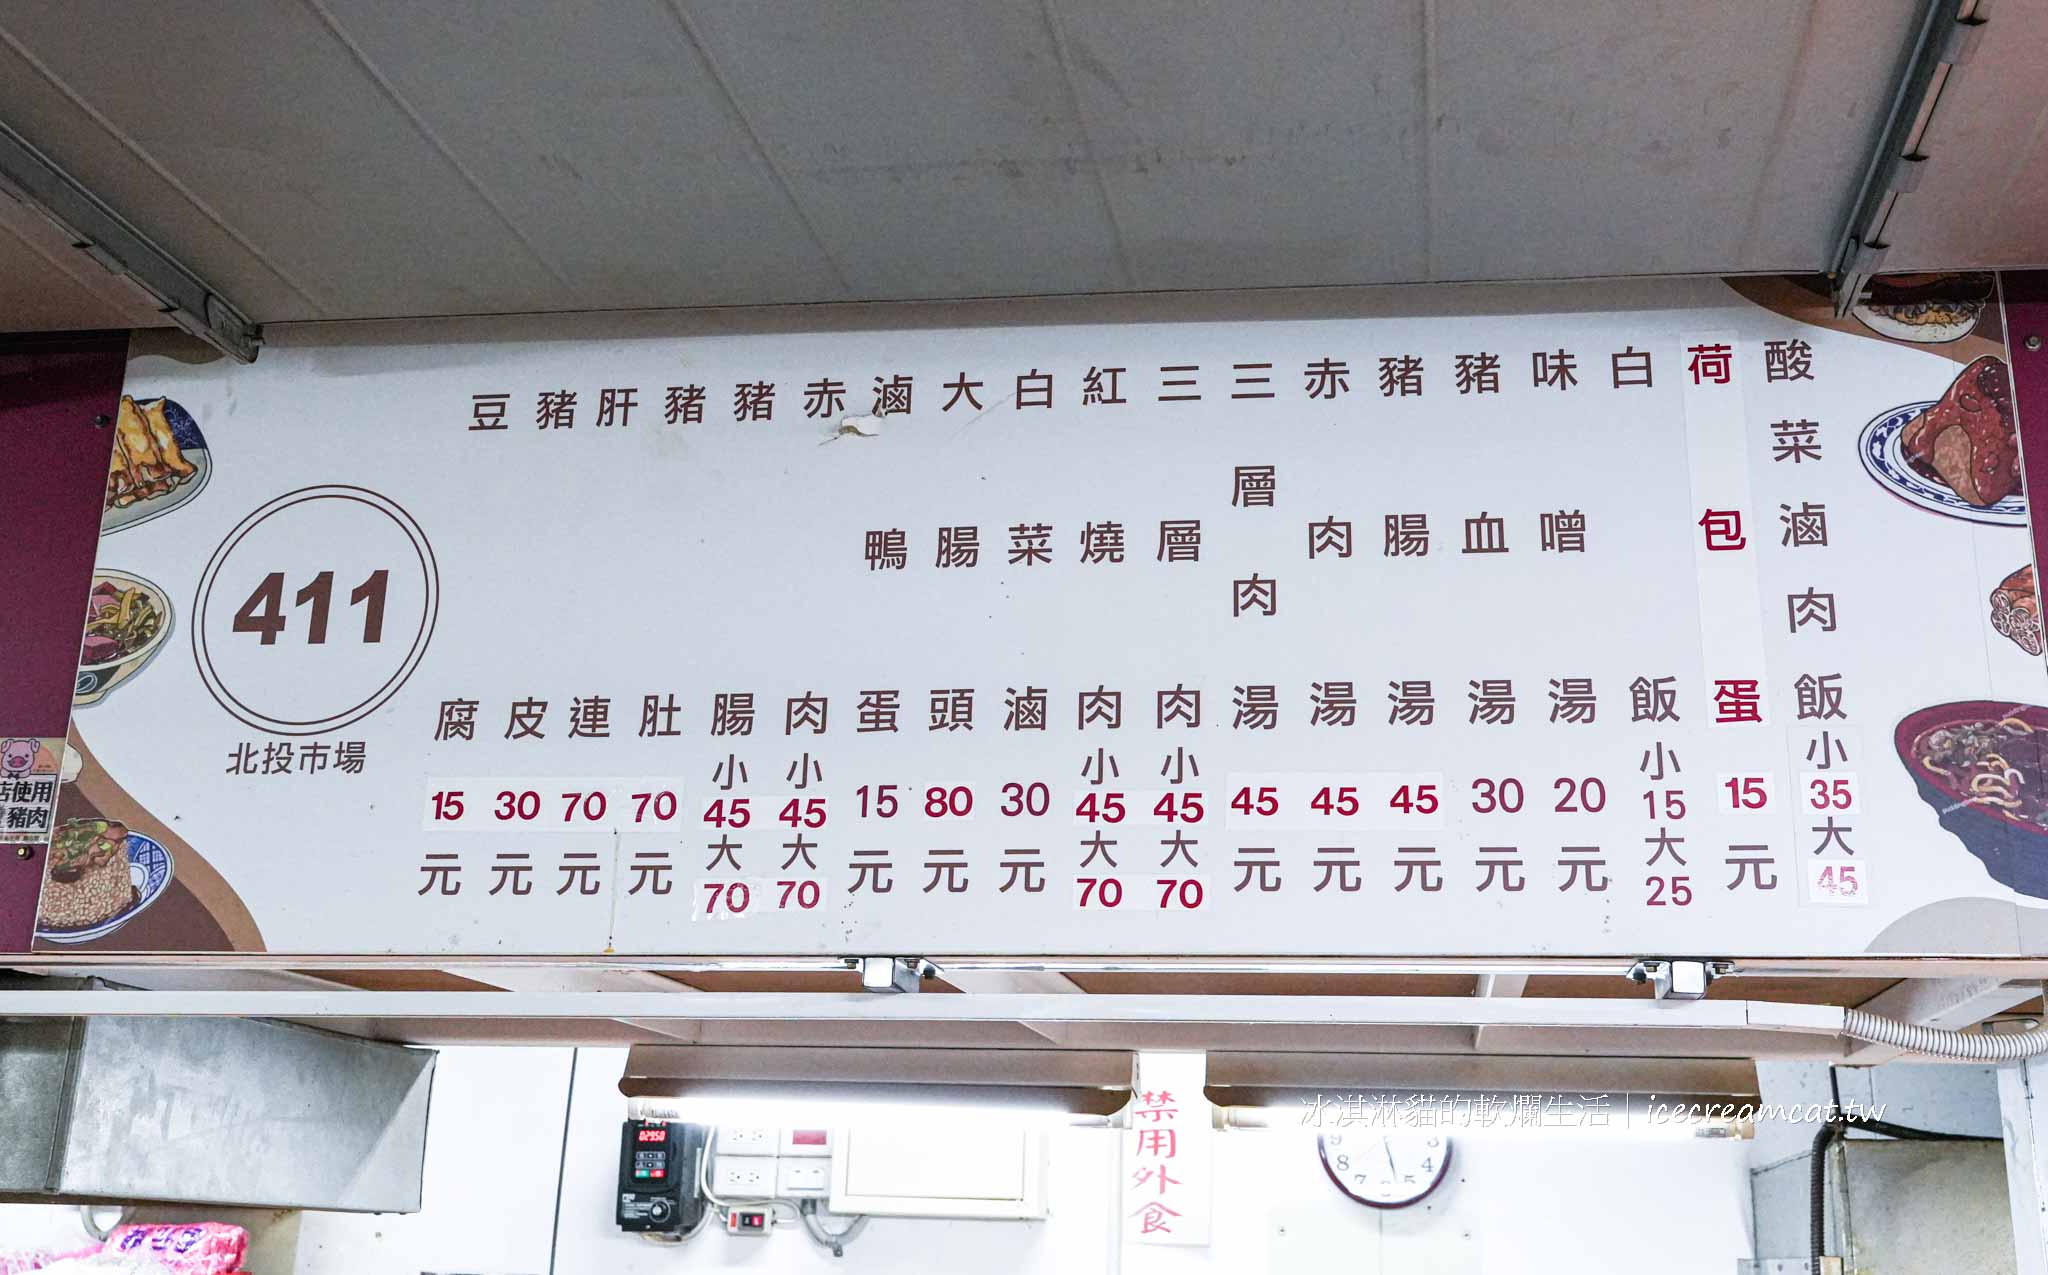 酸菜滷肉飯 小35 大45
荷包蛋 15元
白飯 小15 大25
味噌湯 20元
豬血湯 30元
豬腸湯 45元
赤肉湯 45元
三層肉湯 45元
三層肉 小45 大70
紅燒肉 小45 大70
白菜滷 30元
大腸頭 80元
滷鴨蛋 15元
赤肉 小45 大70
豬腸 小45 大70
豬肚 70元
肝連 70元
豬皮 30元
豆腐 15元
411
北投市場
店使用
豬肉
禁用外食
冰淇淋貓的軟爛生活｜icecreamcat.tw